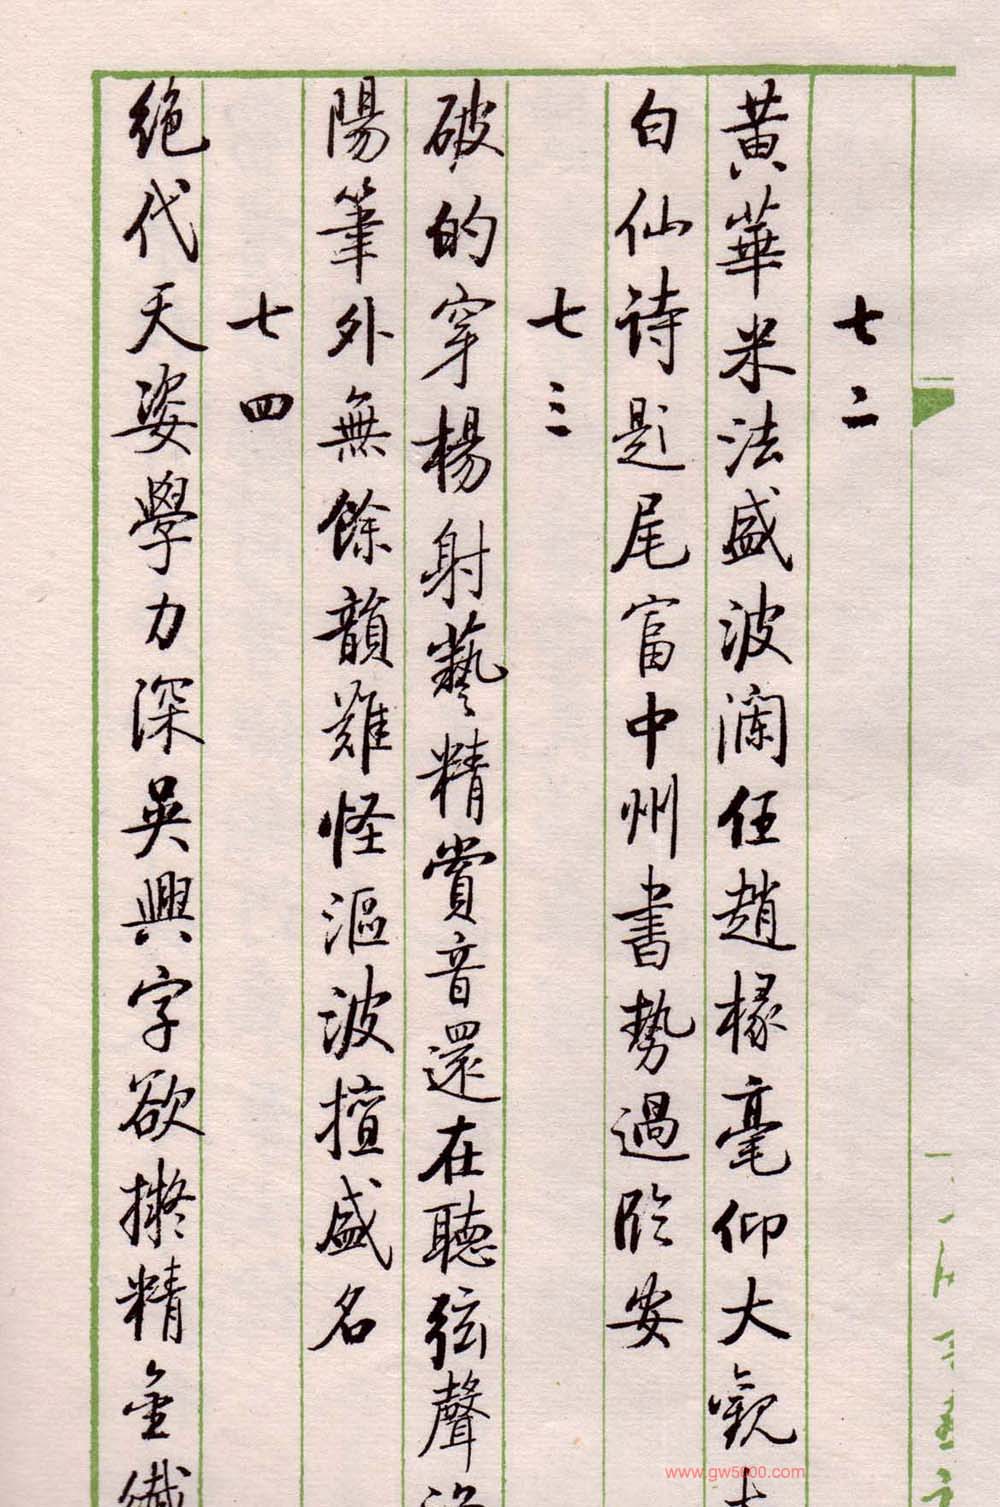 七二
黃華米法盛波澜任趙椽毫仰大觀太
白仙诗题尾富中州書勢過臨安
七三
破的穿楊射藝精賞音還在聽弦聲
陽筆外無餘韻難怪漚波擅盛名
七四
绝代天姿學力深吳興字欲擬精金纖
www.gw5000.com